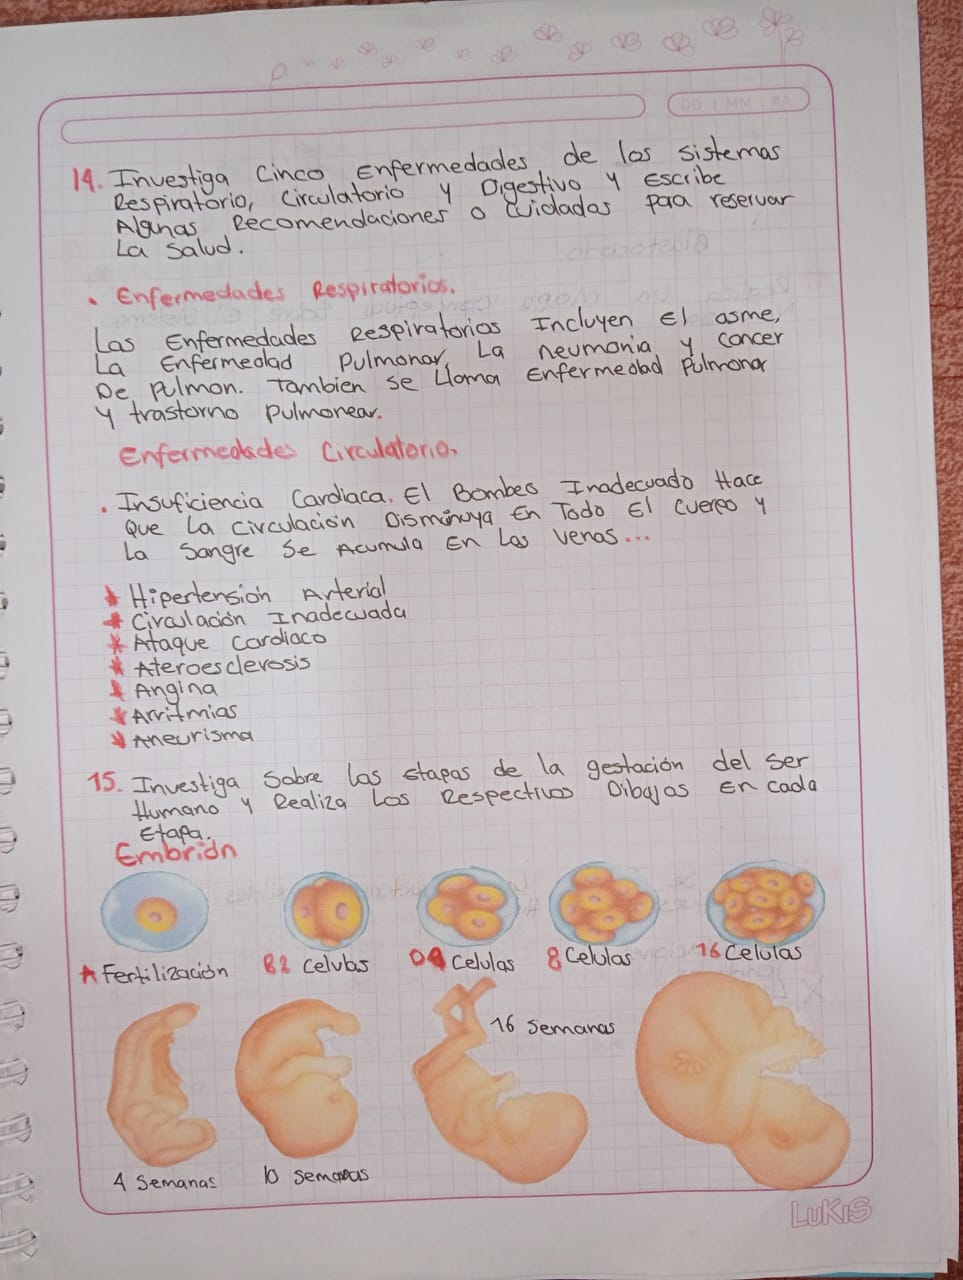 DD MM AA
14. Investiga Cinco Enfermedades de los sistemas
Respiratorio, Circulatorio y Digestivo y Escribe
Algunas Recomendaciones o Cuidados paa reservar
La Salud.
• Enfermedades Respiratorios.
Las Enfermedades Respiratorios Incluyen El asme,
La Enfermedad Pulmonar, La neumonia y concer
De Pulmon. Tambien se Llama Enfermedad Pulmonar
y trastorno Pulmonear.
Enfermedades Circulatorio.
. Insuficiencia Cardiaca. El Bombes Inadecuado Hace
Que La circulación Disminuya En Todo El Cuerpo y
La Sangre Se Acumula En Las venas...
* Hipertensión Arterial
* Circulación Inadecuada
* Ataque Cardiaco
* Ateroesclerosis
* Angina
* Arritmias
* Aneurisma
15. Investiga Sobre las etapas de la gestación del Ser
Humano y Realiza Los Respectivos Dibajos En cada
Etapa.
Embrión
A Fertilización B2 Celulas D4 Celulas 8 Celulas 16 Celulas
16 Semanas
4 Semanas 10 Semanas
LUKIS